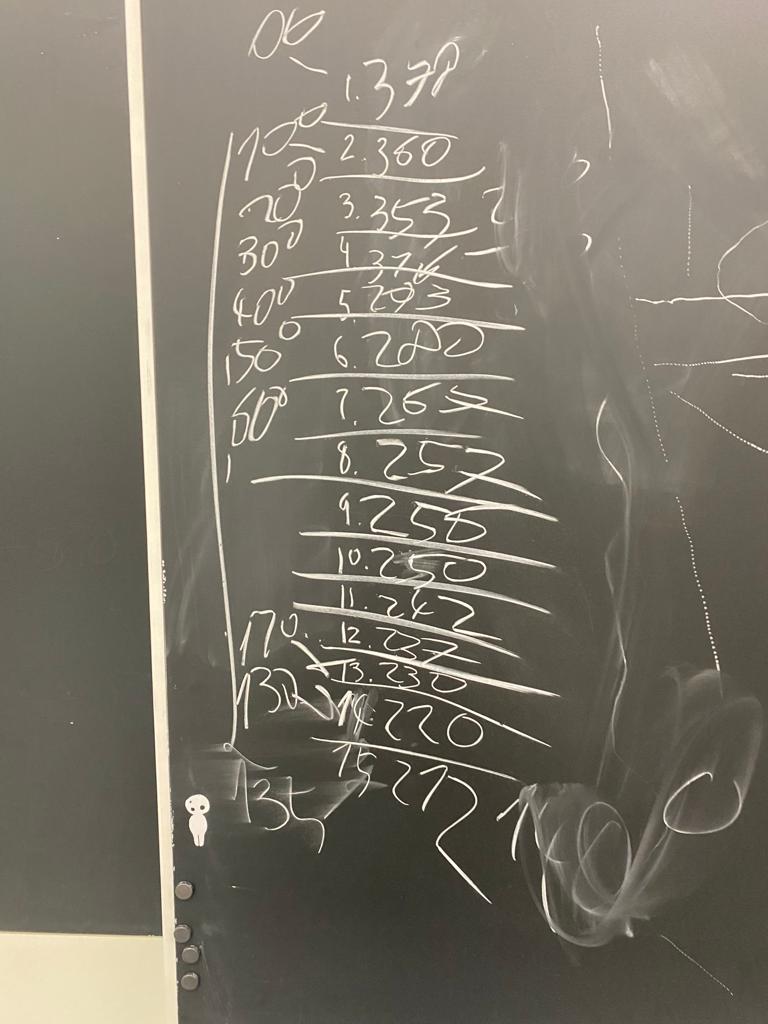 00
1.378
100 2.360
200 3.353
300 4.
400 5.293
150° 6.280
60° 7.265
8.257
9.256
10.250
11.242
12.237
170 13.230
130 14.220
135 15 212